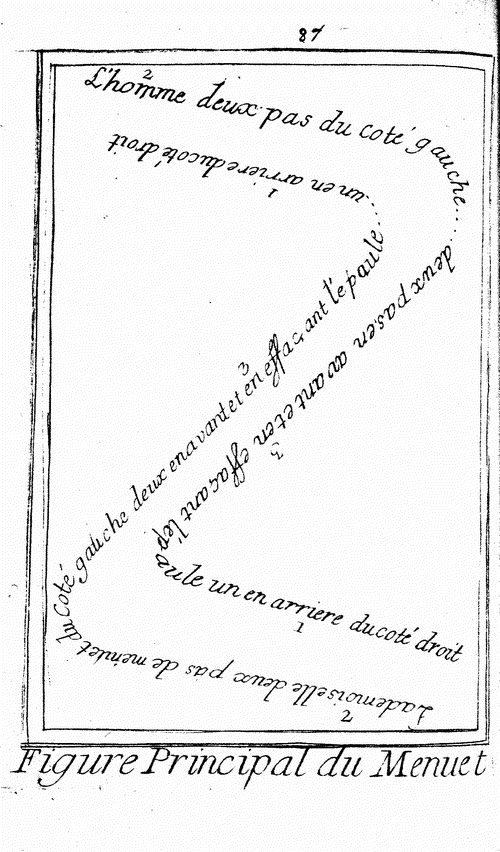 87
2
L'homme deux pas du coté gauche....
deux pas en avant et en effaçant l'ep
3
aule un en arriere du coté droit
1
Lademoiselle deux pas de menuet
2
du coté gauche deux en avant et en effaçant l'épaule...
3
...un en arriere du coté droit
1
Figure Principal du Menuet